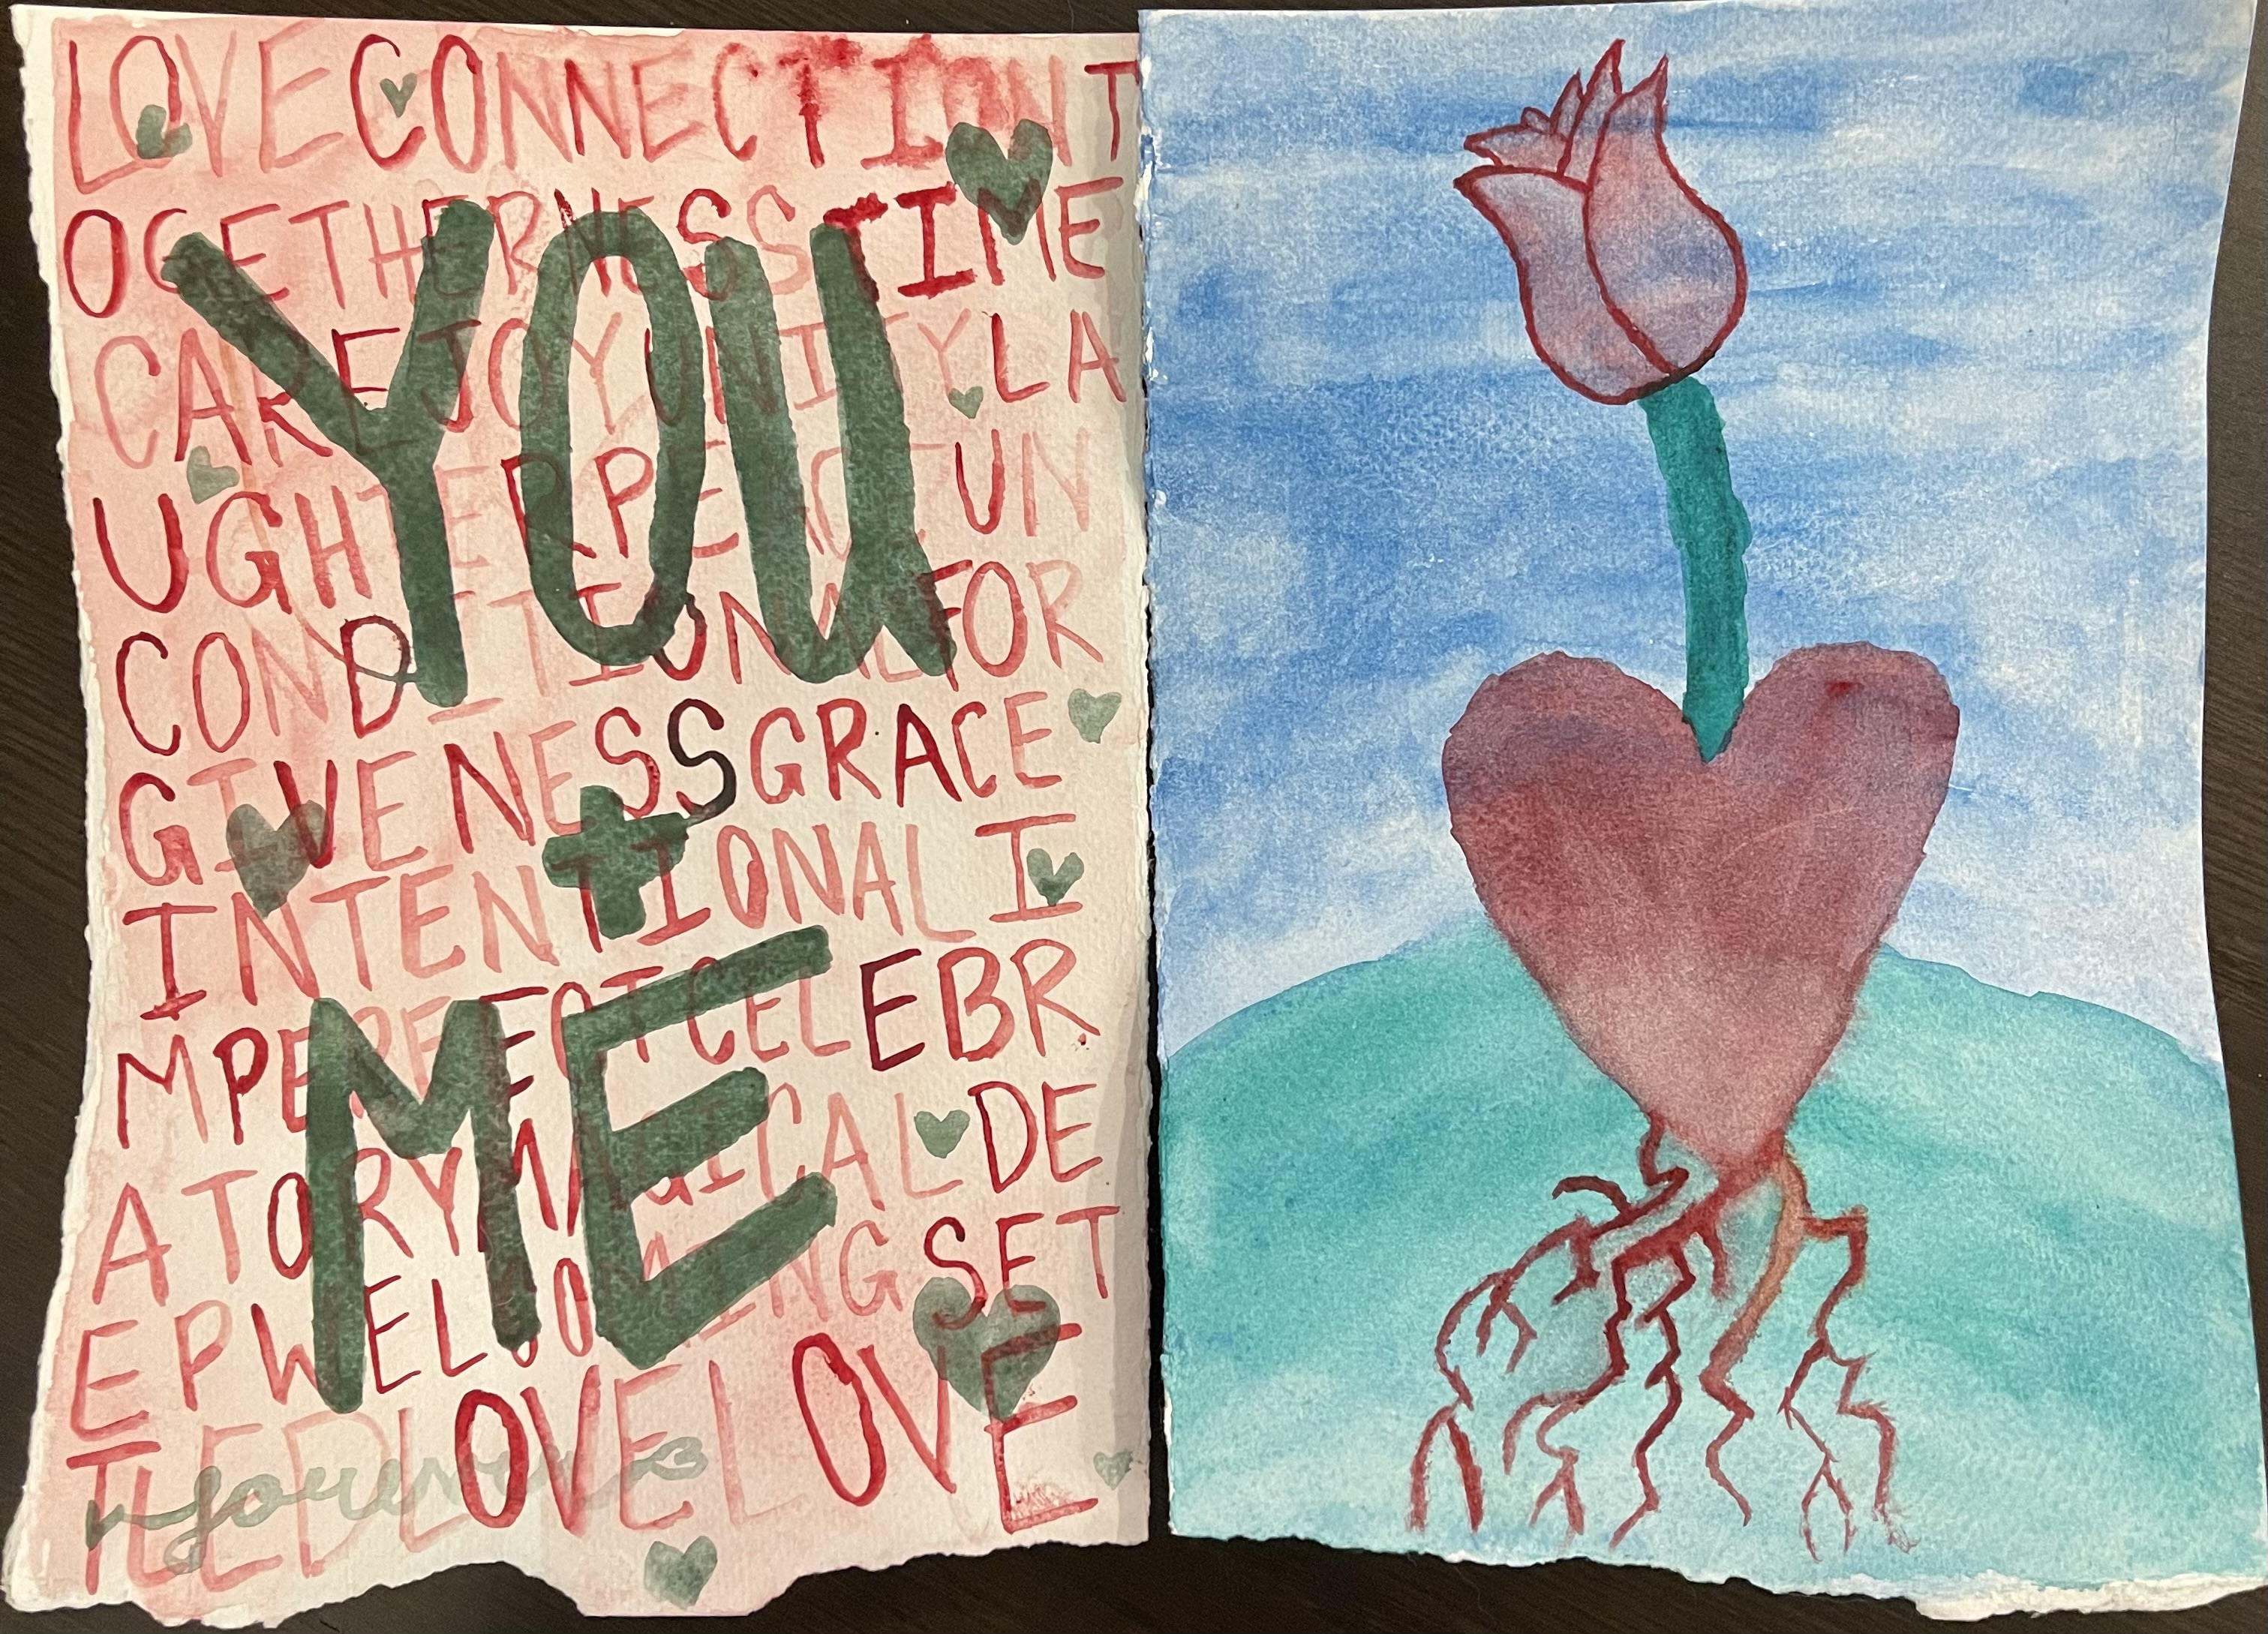 LOVECONNECTIONT
OGETHERNESSTIME
CAREJOYUNITYLA
UGHTERPEACEUN
CONDITIONALFOR
GIVENESSGRACE
INTENTIONALI
MPERFECTCELEBR
ATORYMAGICALDE
EPWELCOMINGSET
TLEDLOVELOVE
YOU
+
ME